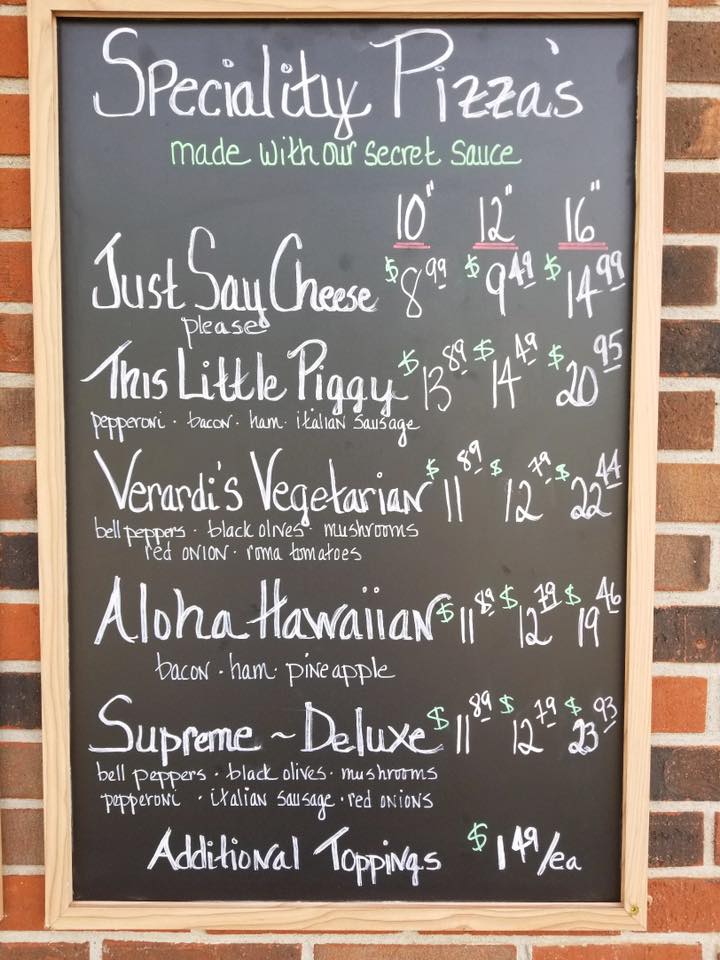 Speciality Pizza's
made with our secret sauce
10" 12" 16"
Just Say Cheese $8.99 $9.49 $14.99
please
This Little Piggy $13.89 $14.49 $20.95
pepperoni · bacon · ham · italian sausage
Verardi's Vegetarian $11.89 $12.79 $22.44
bell peppers · black olives · mushrooms
red onion · roma tomatoes
Aloha Hawaiian $11.89 $12.79 $19.46
bacon · ham · pineapple
Supreme ~ Deluxe $11.89 $12.79 $23.93
bell peppers · black olives · mushrooms
pepperoni · italian sausage · red onions
Additional Toppings $1.49/ea